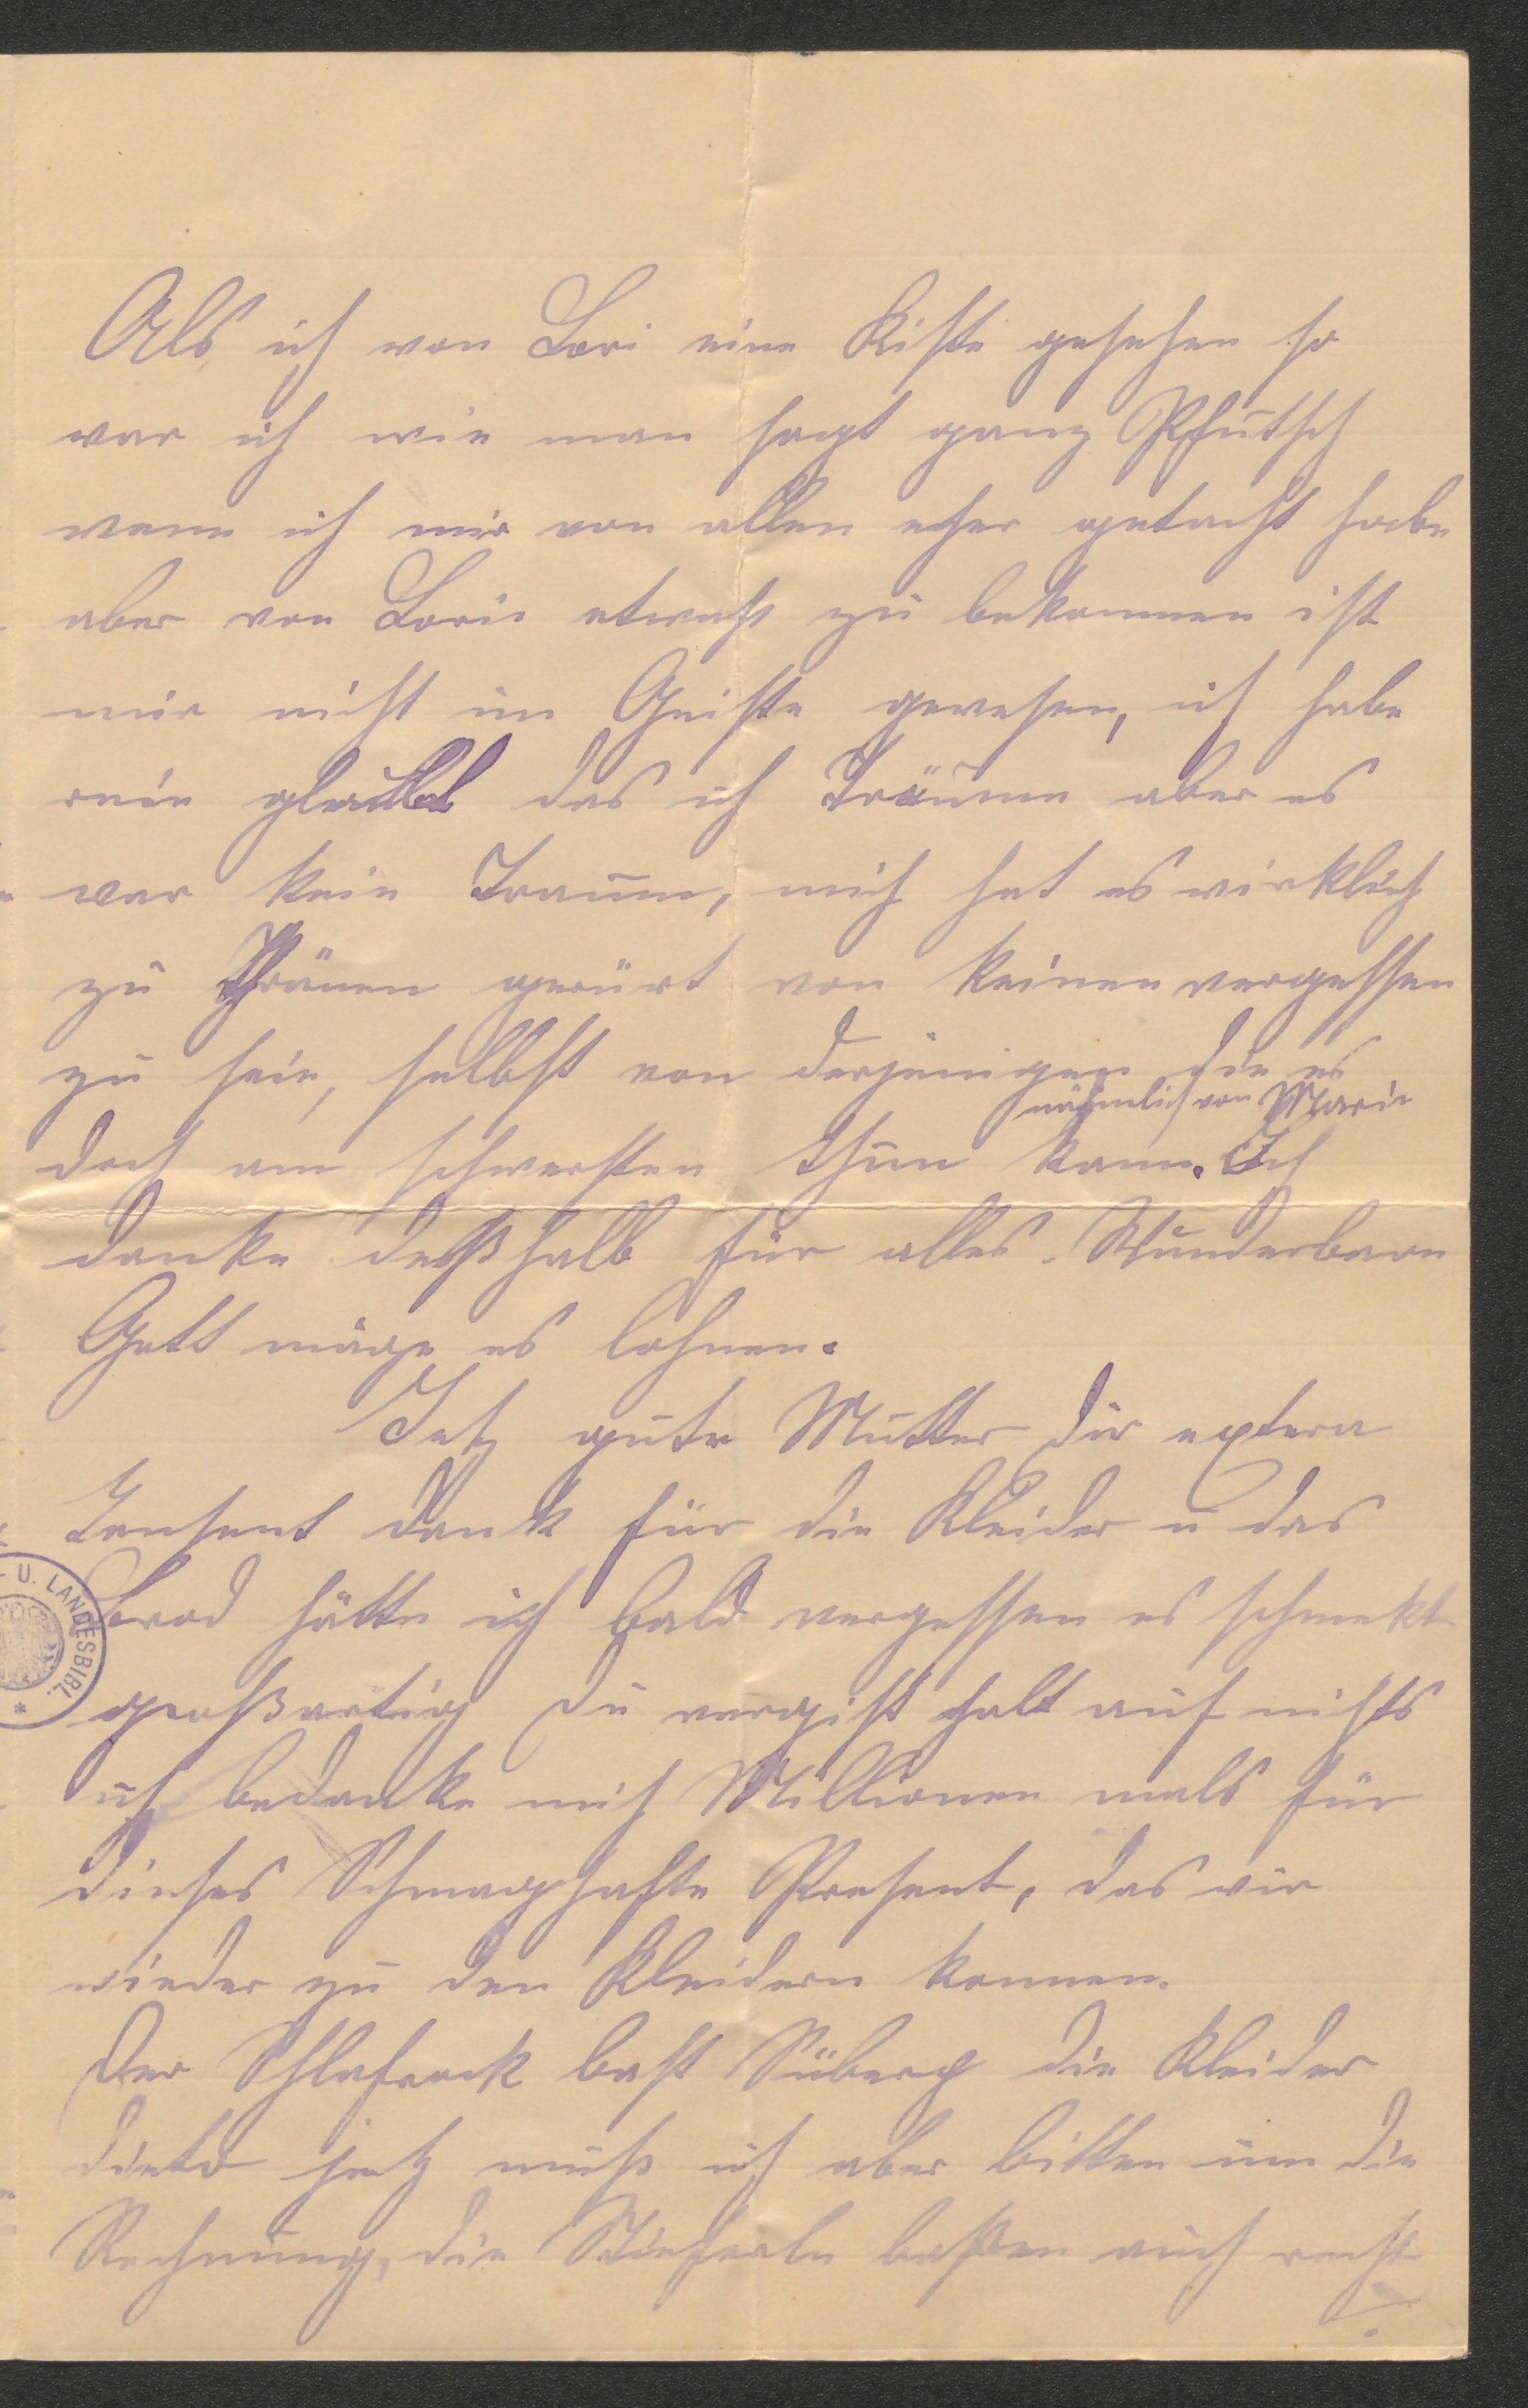 Als ich von Lori eine Kiste gesehen so
war ich wie man sagt ganz Pfutsch
wenn ich mir von allen eher getacht habe
aber von Loris etwaß zu bekommen ist
mir nicht im Geiste gewesen, ich habe
rein glaubt das ich Träume aber es
war kein Traum, mich hat es wirklich
zu Thränen gerürt von keinen vergessen
zu sein, selbst von derjenigen die es
nähmlich von Marie
doch am schwersten thun kann. Ich
danke deßhalb für alles. Wunderbare
Gott möge es lohnen.
Jetz gute Mutter dir extera
Tausent dank für die Kleider u das
Brod hätte ich bald vergessen es schmekt
großartig du vergißt halt auf nichts
ich bedanke mich Millionen mals für
dieses Schmaghafte Present, das wir
wieder zu den Kleidern kommen.
Der Schlafrock baßt Süberg die Kleider
dieto jetz muß ich aber bitten um die
Rechnung, die Stieferln baßen auch recht
U. LANDESBIBL.